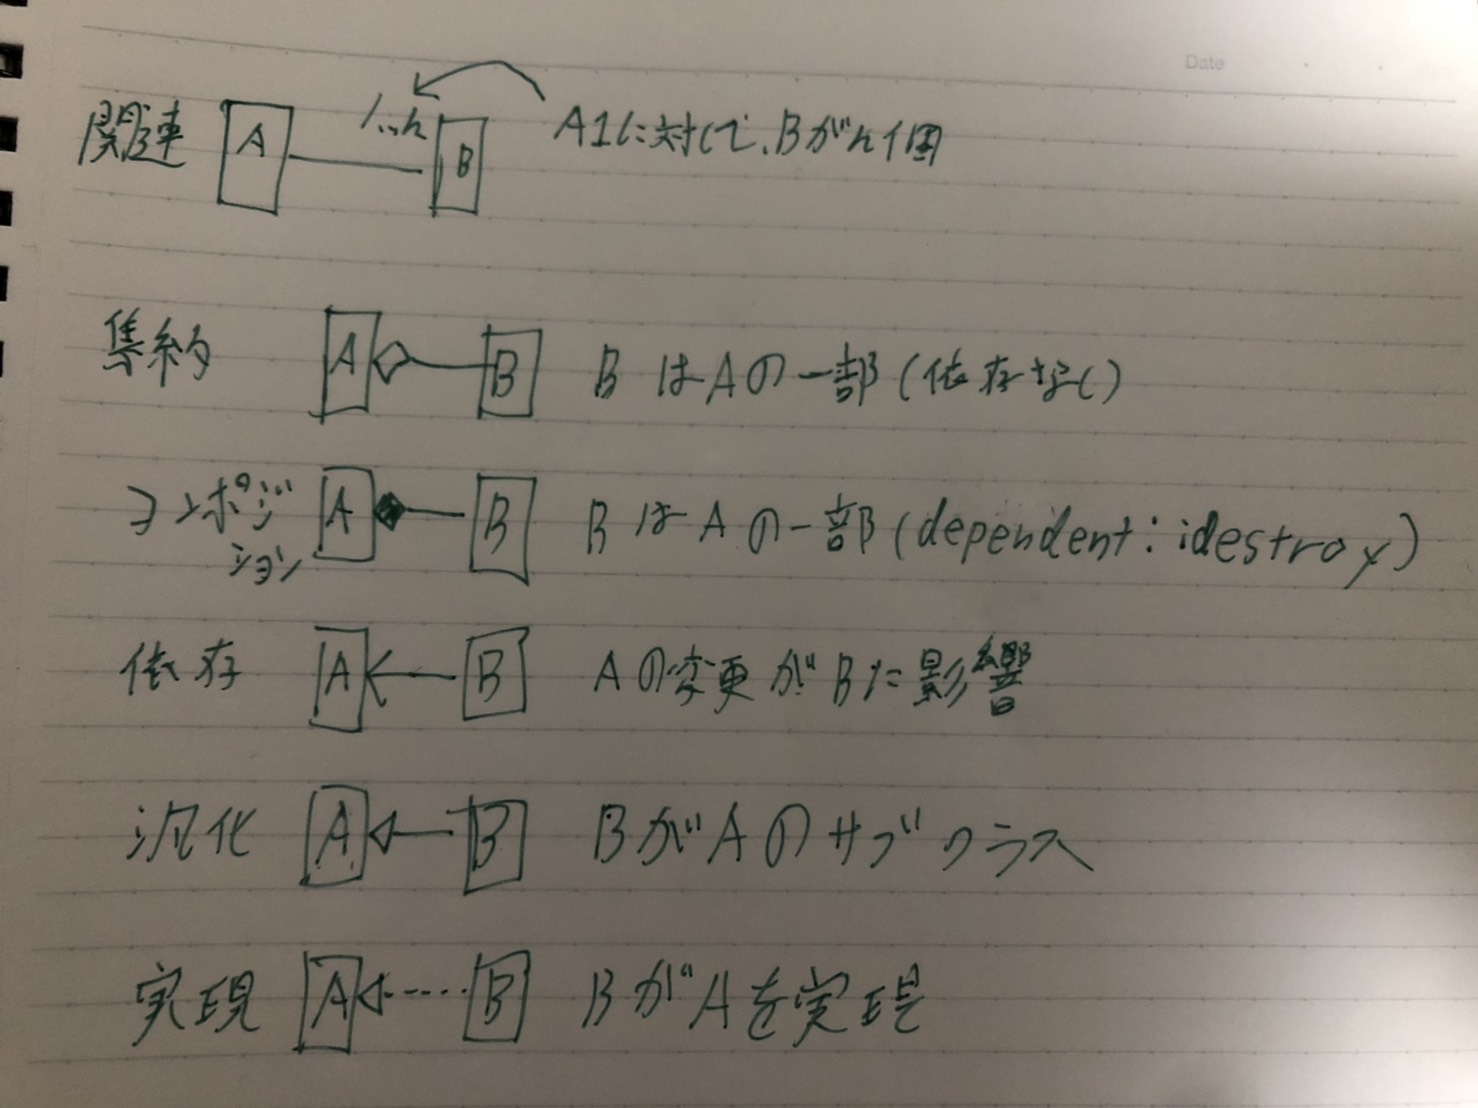 Date
関連 A 1..n B A1に対して、Bがn個
集約 A B BはAの一部(依存なし)
コンポジ A B BはAの一部(dependent:idestroy)
ション
依存 A B Aの変更がBに影響
汎化 A B BがAのサブクラス
実現 A B BがAを実現